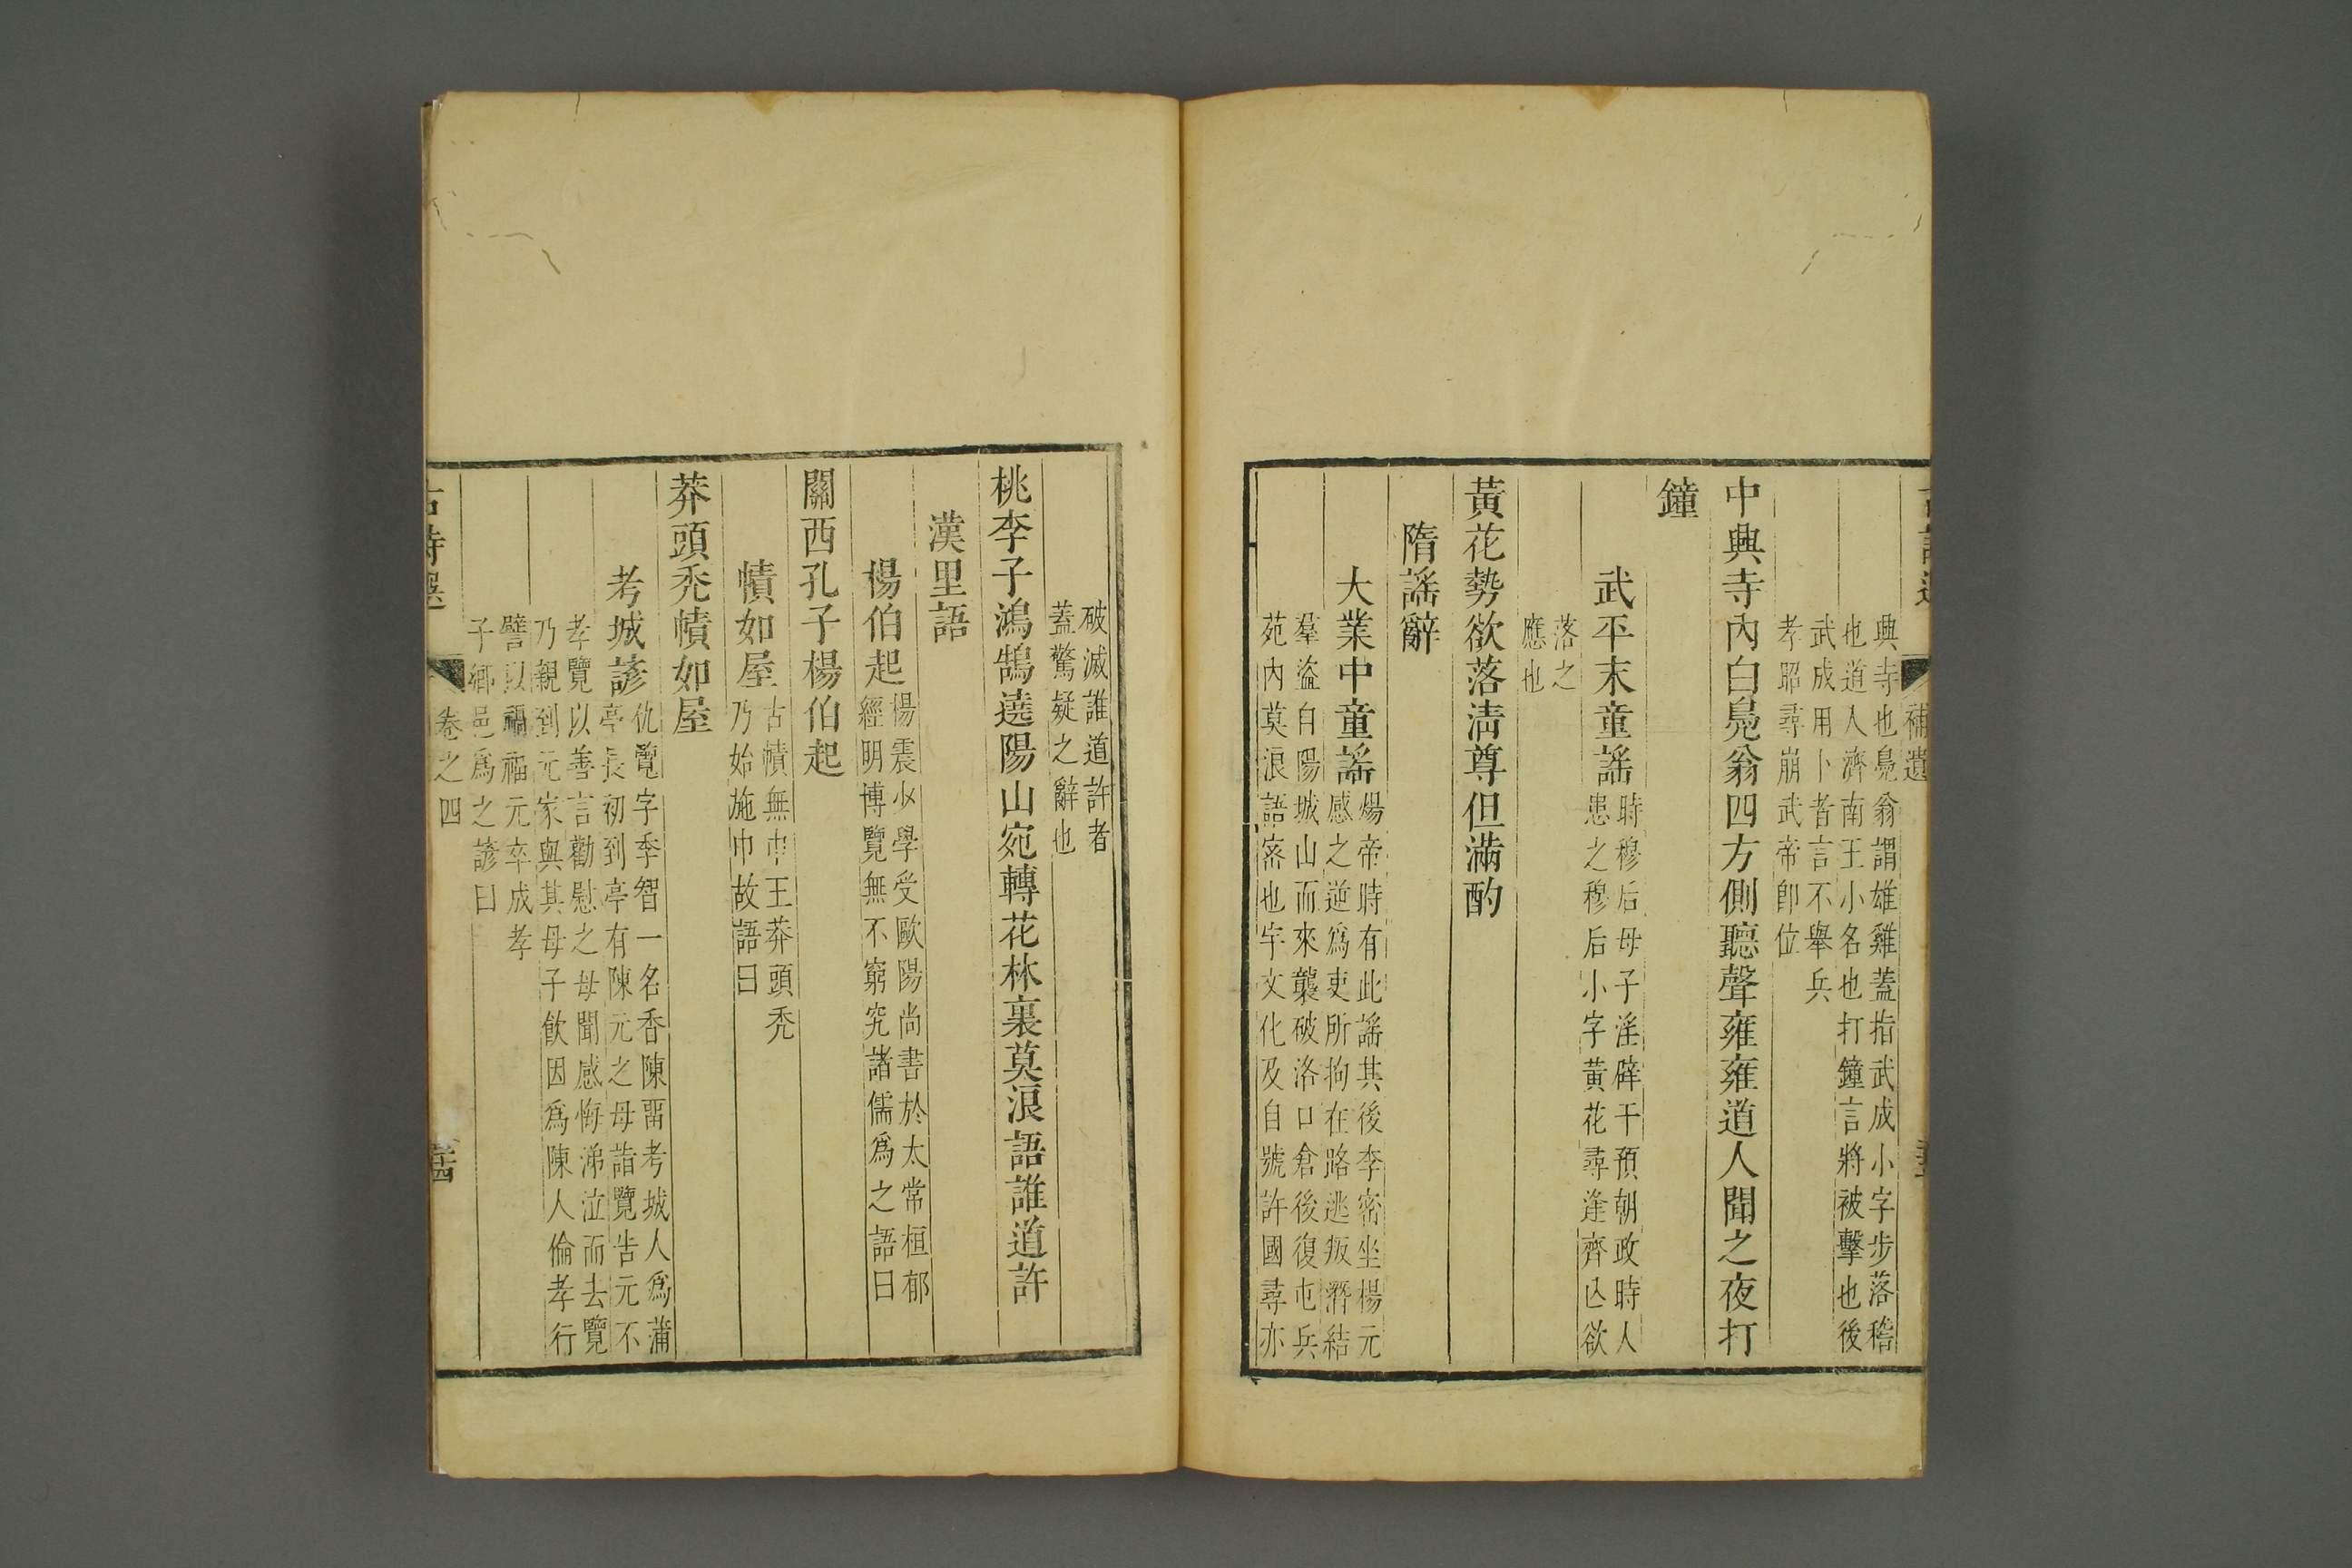 補遺
興寺也鳧翁謂雄雞蓋指武成小字步落稽
也道人濟南王小名也打鐘言將被擊也後
武成用卜者言不舉兵
孝昭尋崩武帝卽位
中興寺內白鳧翁四方側聽聲雍雍道人聞之夜打
鐘
武平末童謠
時穆后母子淫辟干預朝政時人
患之穆后小字黄花尋逢齊亾欲
落之
應也
黃花勢欲落淸尊但滿酌
隋謠辭
大業中童謠
煬帝時有此謠其後李密坐楊元
感之逆爲吏所拘在路逃叛潛結
羣盜自陽城山而來襲破洛口倉後復屯兵
苑內莫浪語密也宇文化及自號許國尋亦
破滅誰道許者
蓋驚疑之辭也
桃李子鴻鵠遶陽山宛轉花林裏莫浪語誰道許
漢里語
楊伯起
楊震少學受歐陽尚書於太常桓郁
經明博覽無不窮究諸儒爲之語曰
關西孔子楊伯起
幘如屋
古幘無巾王莽頭禿
乃始施巾故語曰
莽頭禿幘如屋
考城諺
仇覽字季智一名香陳畱考城人爲蒲
亭長初到亭有陳元之母詣覽告元不
孝覽以善言勸慰之母聞感悔涕泣而去覽
乃親到元家與其母子飲因爲陳人倫孝行
譬以禍福元卒成孝
子鄉邑爲之諺曰
古詩選
卷之四